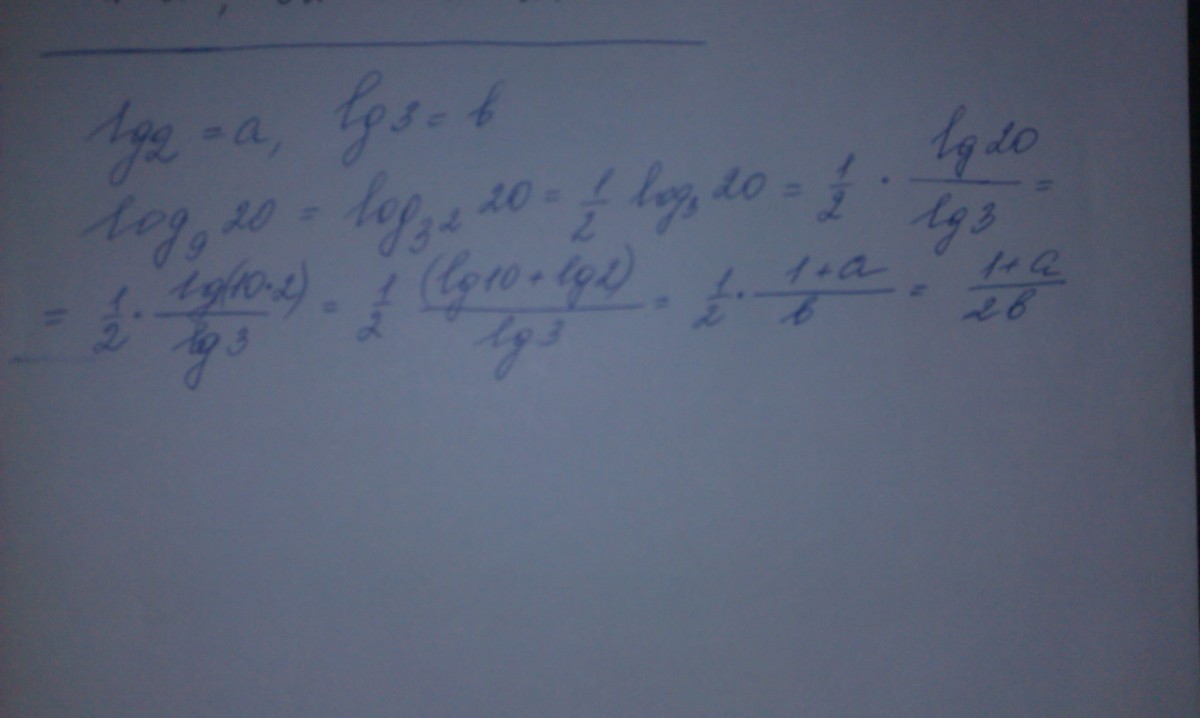 lg2 = a, lg3 = b
log₉ 20 = log₃² 20 = 1/2 log₃ 20 = 1/2 · lg20/lg3 =
= 1/2 · lg(10·2)/lg3 = 1/2 (lg10 + lg2)/lg3 = 1/2 · 1+a/b = 1+a/2b